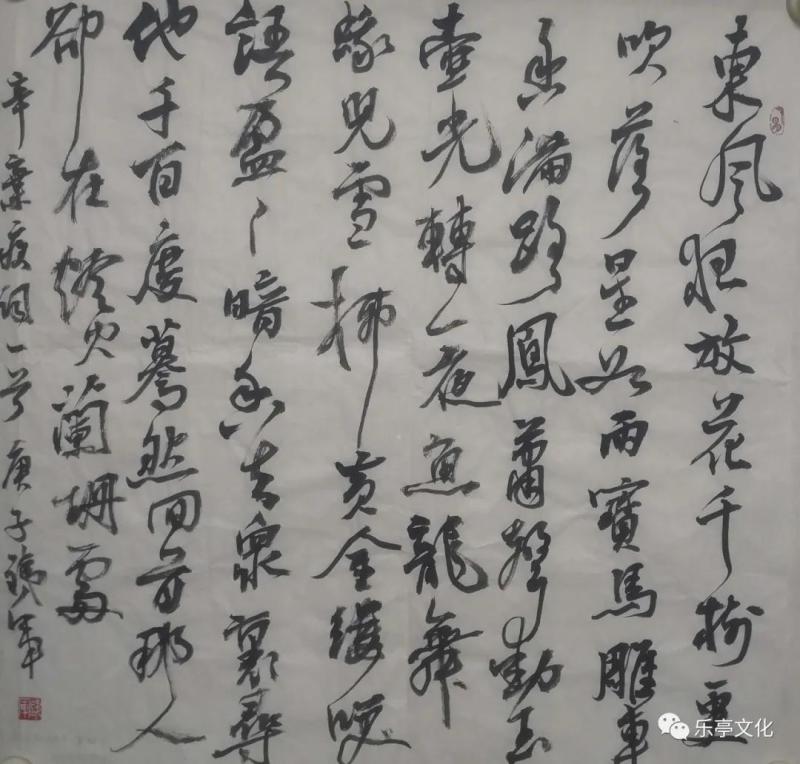 東風狂放花千樹更
吹落星如雨寶馬雕車
香滿路鳳蕭聲動玉
壺光轉一夜魚龍舞
蛾兒雪柳黄金縷咲
語盈々暗香去衆裏尋
他千百度驀然回首那人
卻在燈火蘭珊處
辛棄疾詞一首庚子鐵軍
乐亭文化